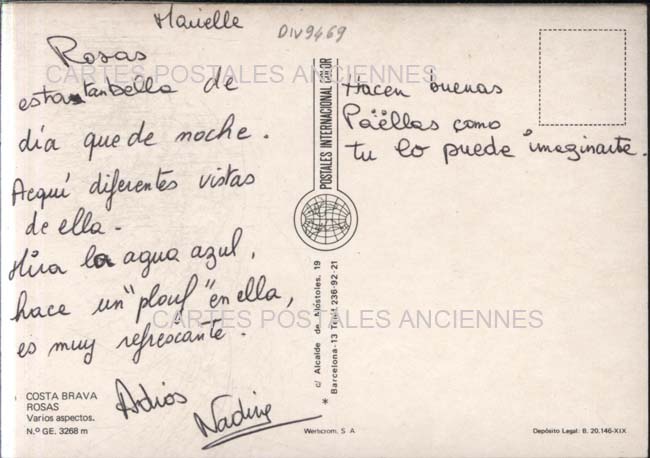 Marielle
DIV9469
Rosas
CARTES POSTALES ANCIENNES
esta tanbella de
día que de noche.
Acquí diferentes vistas
de ella.
Mira la agua azul,
hace un "plouf" en ella,
es muy refrescante.
Adios
Nadine
Hacen buenas
Paëllas como
tu lo puede imaginarte.
CARTES POSTALES ANCIENNES
POSTALES INTERNACIONAL COLOR
c/ Alcalde de Móstoles, 19
* Barcelona-13 Telf. 236-92-21
COSTA BRAVA
ROSAS
Varios aspectos.
N.º GE. 3268 m
Wertscrom, S A
Depósito Legal: B. 20.146-XIX